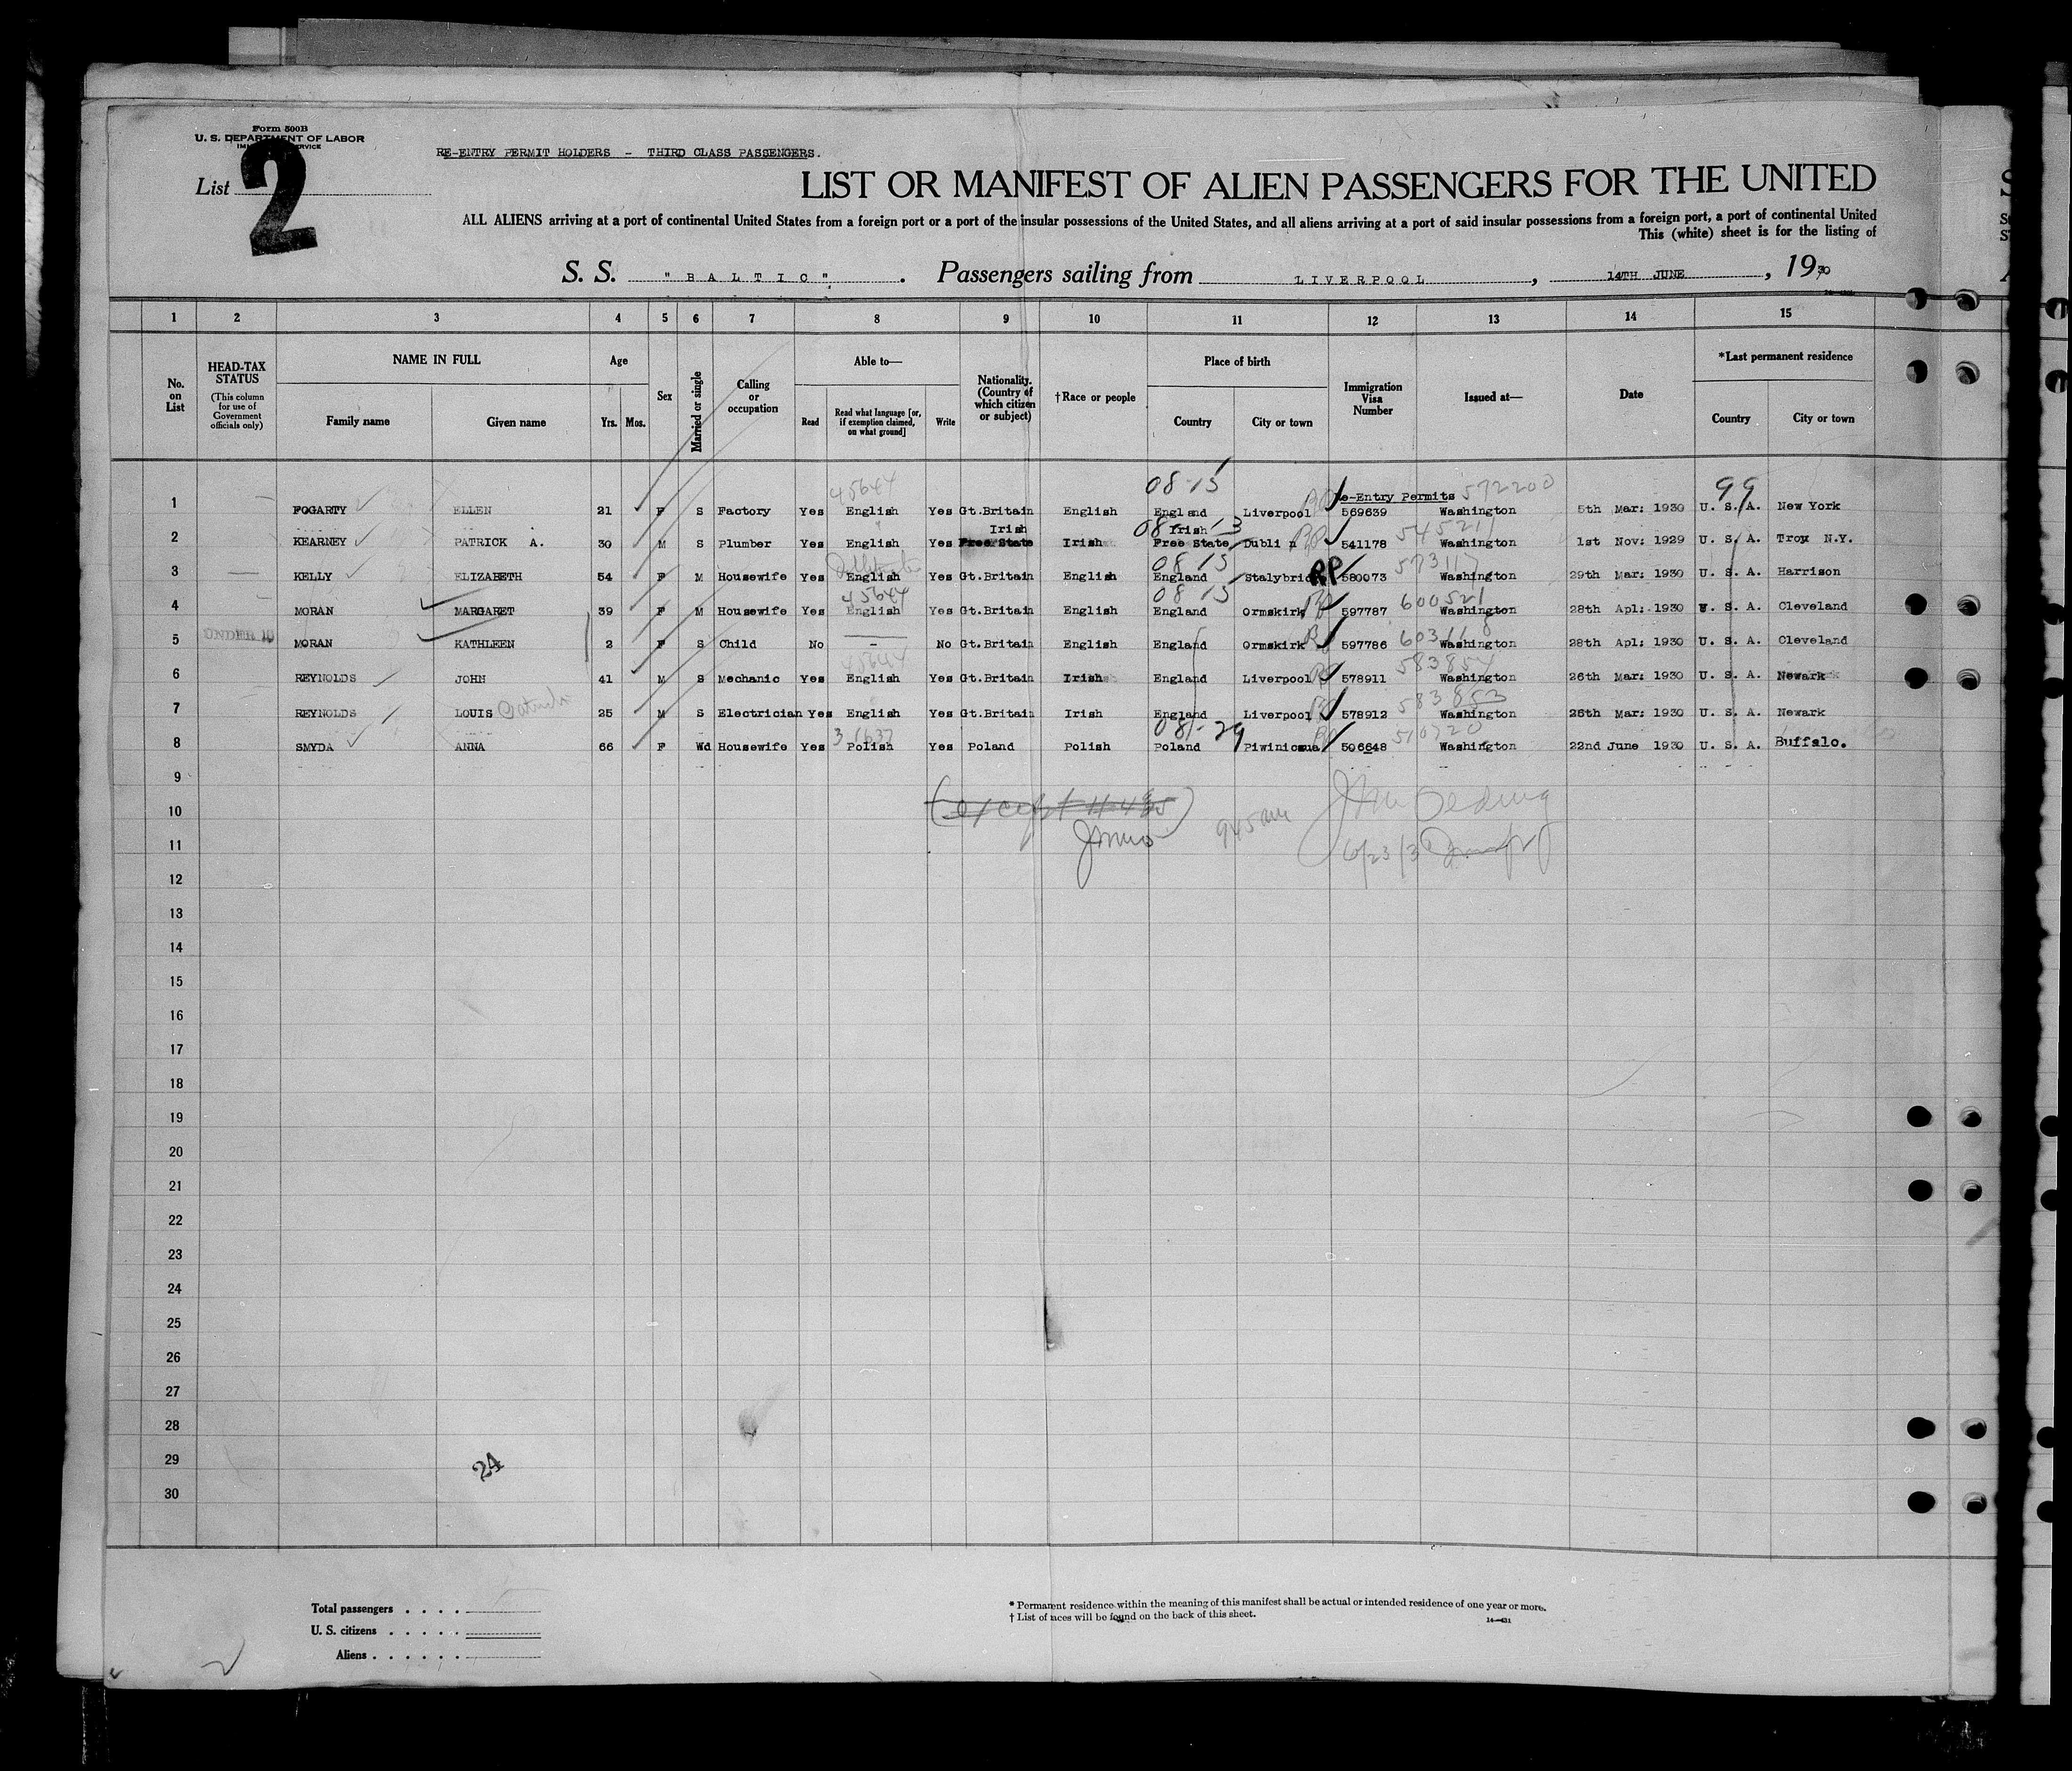 Form 500B
U. S. DEPARTMENT OF LABOR
List 2
RE-ENTRY PERMIT HOLDERS - THIRD CLASS PASSENGERS.
LIST OR MANIFEST OF ALIEN PASSENGERS FOR THE UNITED
ALL ALIENS arriving at a port of continental United States from a foreign port or a port of the insular possessions of the United States, and all aliens arriving at a port of said insular possessions from a foreign port, a port of continental United
This (white) sheet is for the listing of
S. S. "BALTIC". Passengers sailing from LIVERPOOL, 14TH JUNE, 1930
1 2 3 4 5 6 7 8 9 10 11 12 13 14 15
No. on List
HEAD-TAX STATUS
(This column for use of Government officials only)
NAME IN FULL
Family name Given name
Age
Yrs. Mos.
Sex
Married or single
Calling or occupation
Able to—
Read Read what language [or, if exemption claimed, on what ground] Write
Nationality. (Country of which citizen or subject)
†Race or people
Place of birth
Country City or town
Immigration Visa Number
Issued at—
Date
*Last permanent residence
Country City or town
45644 08 15 Re-Entry Permits 572200 99
1 FOGARTY ELLEN 21 F S Factory Yes English Yes Gt.Britain English England Liverpool 569639 Washington 5th Mar: 1930 U. S. A. New York
Irish 08 Irish 13 545211
2 KEARNEY PATRICK A. 30 M S Plumber Yes English Yes Free State Irish Free State Dublin 541178 Washington 1st Nov: 1929 U. S. A. Troy N.Y.
08 15
3 KELLY ELIZABETH 54 F M Housewife Yes English Yes Gt.Britain English England RP 580073 Washington 29th Mar: 1930 U. S. A. Harrison
45644 08 15 600521
4 MORAN MARGARET 39 F M Housewife Yes English Yes Gt.Britain English England Ormskirk 597787 Washington 28th Apl: 1930 U. S. A. Cleveland
5 MORAN KATHLEEN 2 F S Child No - No Gt.Britain English England Ormskirk 597786 Washington 28th Apl: 1930 U. S. A. Cleveland
45644 583854
6 REYNOLDS JOHN 41 M S Mechanic Yes English Yes Gt.Britain Irish England Liverpool 578911 Washington 26th Mar: 1930 U. S. A. Newark
583853
7 REYNOLDS LOUIS 25 M S Electrician Yes English Yes Gt.Britain Irish England Liverpool 578912 Washington 26th Mar: 1930 U. S. A. Newark
08 29 510720
8 SMYDA ANNA 66 F Wd Housewife Yes Polish Yes Poland Polish Poland 506648 Washington 22nd June 1930 U. S. A. Buffalo.
9
10
945am
11
6/23/30
12
13
14
15
16
17
18
19
20
21
22
23
24
25
26
27
28
29
24
30
Total passengers . . . .
U. S. citizens . . . . .
Aliens . . . . . .
* Permanent residence within the meaning of this manifest shall be actual or intended residence of one year or more.
† List of races will be found on the back of this sheet.